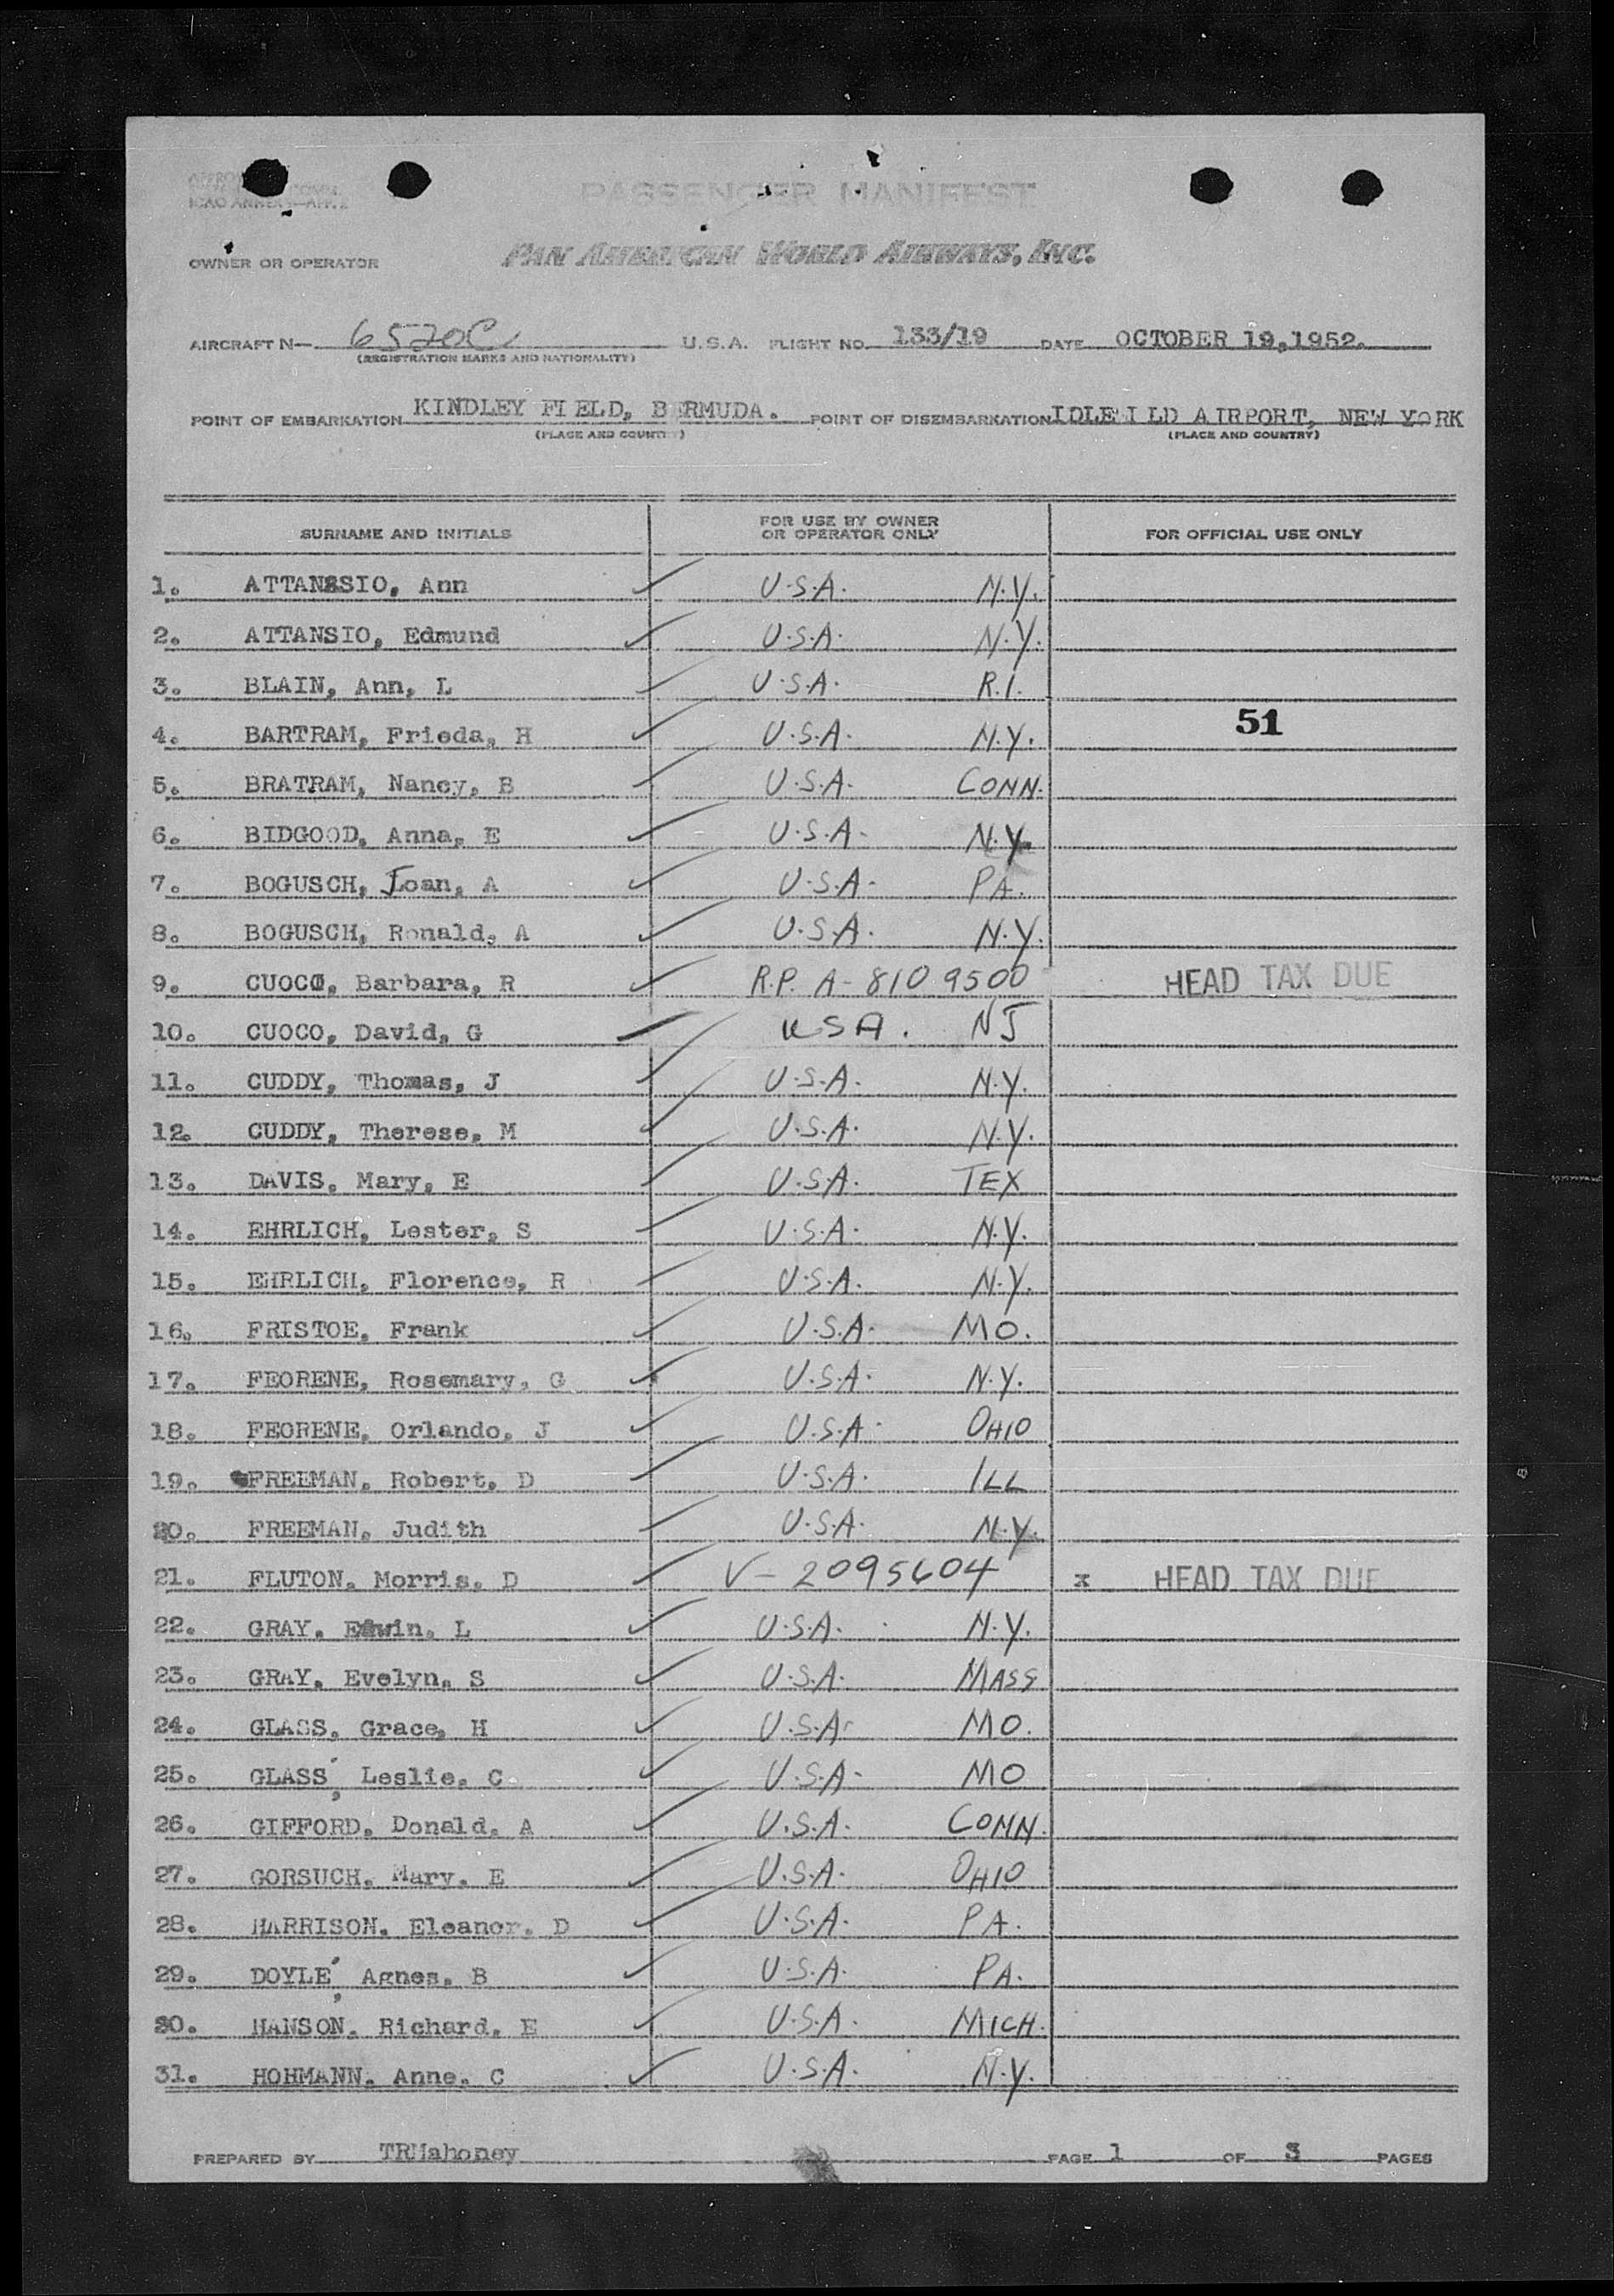 PASSENGER MANIFEST
ICAO ANNEX 9—APP. 2
OWNER OR OPERATOR PAN AMERICAN WORLD AIRWAYS, INC.
AIRCRAFT N— 6520C U.S.A. FLIGHT NO. 133/19 DATE OCTOBER 19,1952.
(REGISTRATION MARKS AND NATIONALITY)
POINT OF EMBARKATION KINDLEY FIELD, BERMUDA. POINT OF DISEMBARKATION IDLEWILD AIRPORT, NEW YORK
(PLACE AND COUNTRY) (PLACE AND COUNTRY)
SURNAME AND INITIALS FOR USE BY OWNER OR OPERATOR ONLY FOR OFFICIAL USE ONLY
1. ATTANASIO, Ann ✓ U.S.A. N.Y.
2. ATTANSIO, Edmund ✓ U.S.A. N.Y.
3. BLAIN, Ann, L ✓ U.S.A. R.I.
4. BARTRAM, Frieda, H ✓ U.S.A. N.Y. 51
5. BRATRAM, Nancy, B ✓ U.S.A. CONN.
6. BIDGOOD, Anna, E ✓ U.S.A. N.Y.
7. BOGUSCH, Joan, A ✓ U.S.A. PA.
8. BOGUSCH, Ronald, A ✓ U.S.A. N.Y.
9. CUOCO, Barbara, R ✓ R.P. A-810 9500 HEAD TAX DUE
10. CUOCO, David, G ✓ USA. NJ
11. CUDDY, Thomas, J ✓ U.S.A. N.Y.
12. CUDDY, Therese, M ✓ U.S.A. N.Y.
13. DAVIS, Mary, E ✓ U.S.A. TEX
14. EHRLICH, Lester, S ✓ U.S.A. N.Y.
15. EHRLICH, Florence, R ✓ U.S.A. N.Y.
16. FRISTOE, Frank ✓ U.S.A. MO.
17. FEORENE, Rosemary, G ✓ U.S.A. N.Y.
18. FEORENE, Orlando, J ✓ U.S.A. OHIO
19. FREEMAN, Robert, D ✓ U.S.A. ILL
20. FREEMAN, Judith ✓ U.S.A. N.Y.
21. FLUTON, Morris, D ✓ V-2095604 x HEAD TAX DUE
22. GRAY, Edwin, L ✓ U.S.A. N.Y.
23. GRAY, Evelyn, S ✓ U.S.A. MASS
24. GLASS, Grace, H ✓ U.S.A. MO.
25. GLASS, Leslie, C ✓ U.S.A. MO
26. GIFFORD, Donald, A ✓ U.S.A. CONN.
27. GORSUCH, Mary, E ✓ U.S.A. OHIO
28. HARRISON, Eleanor, D ✓ U.S.A. PA.
29. DOYLE, Agnes, B ✓ U.S.A. PA.
30. HANSON, Richard, E ✓ U.S.A. MICH.
31. HOHMANN, Anne, C ✓ U.S.A. N.Y.
PREPARED BY TRMahoney PAGE 1 OF 3 PAGES